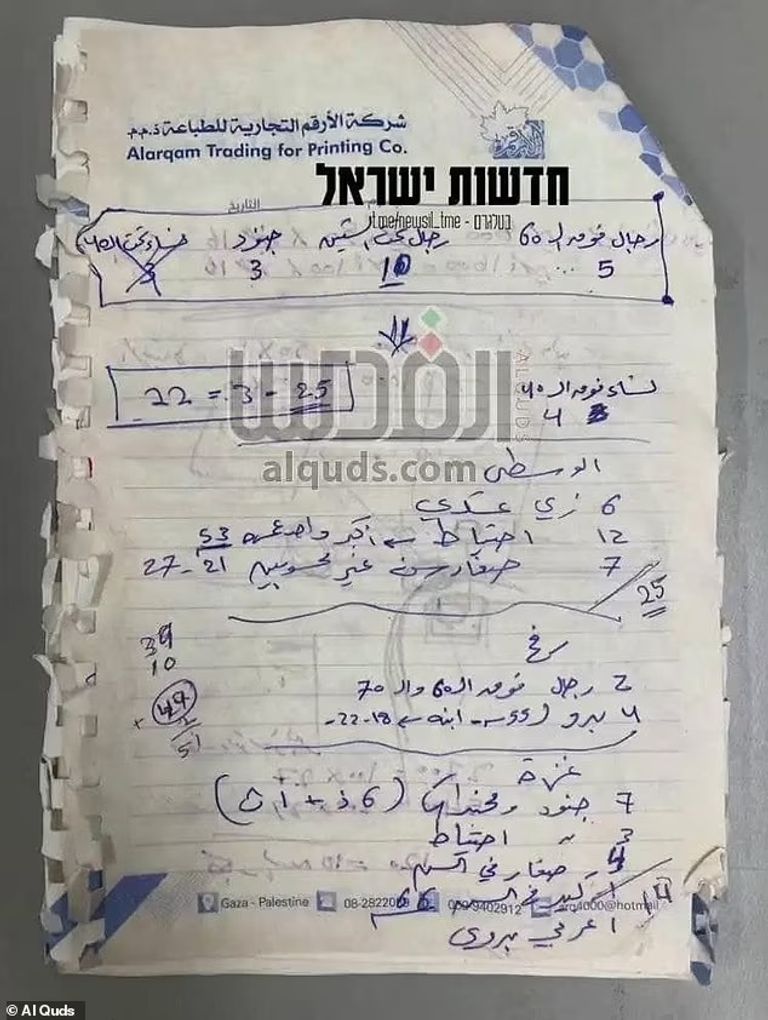 شركة الأرقم التجارية للطباعة ذ.م.م
Alarqam Trading for Printing Co.
الأرقم
חדשות ישראל
בטלגרם - t.me/newsil_tme
التاريخ
رجال فوق الـ 60 رجال تحت الستين جنود نساء تحت الـ 40
5 10 3 3
25 - 3 = 22
نساء فوق الـ 40
4
القدس
ALQUDS
alquds.com
الوسطى
6 زي عسكري
12 احتياط ← أكبر واحد عمره 53
7 صغار سن غير محسوبين 21-27
25
39
10
49
2
51
رفح
2 رجال فوق الـ 60 والـ 70
4 بدو (55 سنة - ابنه ← 18-22-
غزة
7 جنود ومجندات (6 ذ + 1 ث)
3 " احتياط
4 صغار في السن
1 كبير في السن 66
14
1 عربي بدوي
Gaza - Palestine
arq4000@hotmail
© Al Quds